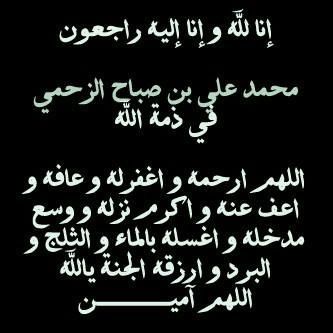 إنا لله وإنا إليه راجعون
محمد علي بن صباح الزحمي
في ذمة الله
اللهم ارحمه و اغفرله و عافه و
اعف عنه و اكرم نزله و وسع
مدخله و اغسله بالماء و الثلج و
البرد و ارزقه الجنة يالله
اللهم آميـــــــــــن